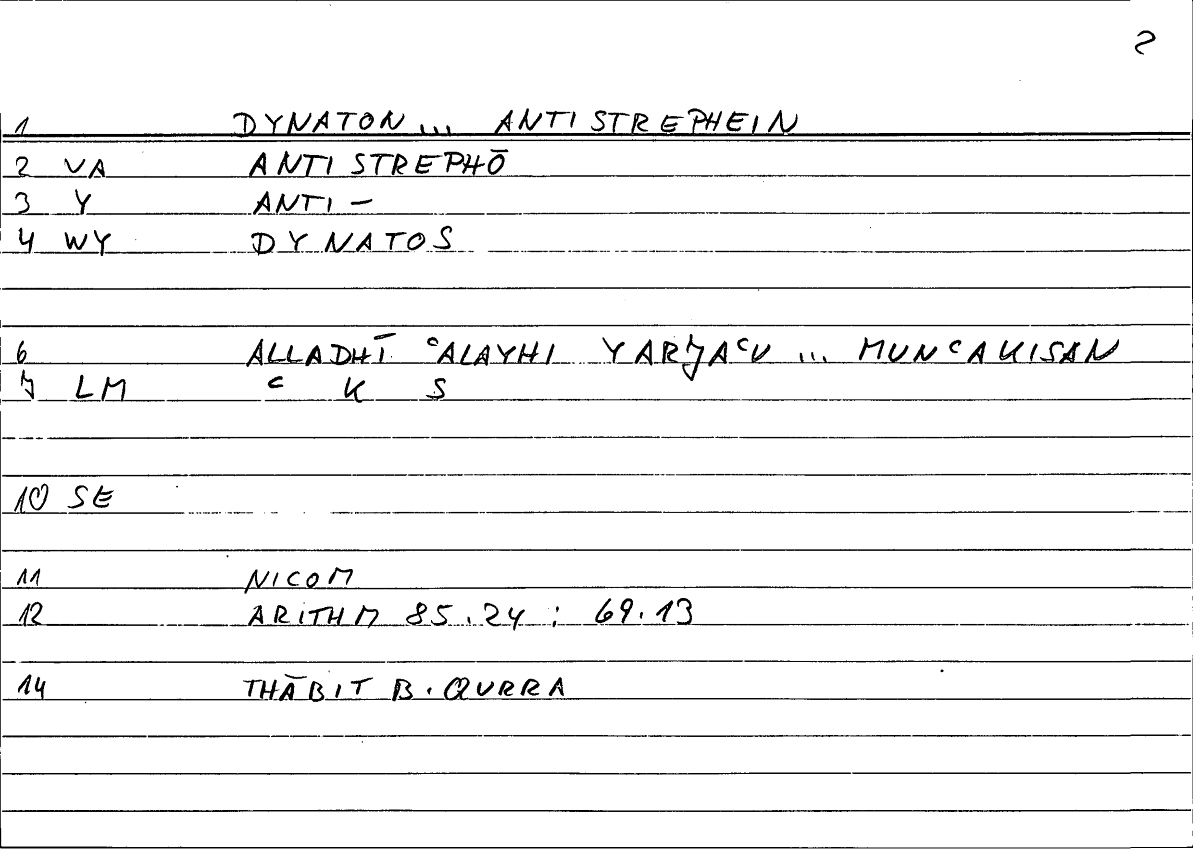 2
1 DYNATON ... ANTISTREPHEIN
2 VA ANTISTREPHŌ
3 Y ANTI-
4 WY DYNATOS
6 ALLADHĪ ᶜALAYHI YARJAᶜU ... MUNᶜAKISAN
7 LM ᶜ K S
10 SE
11 NICOM
12 ARITHM 85.24 ; 69.13
14 THĀBIT B. QURRA